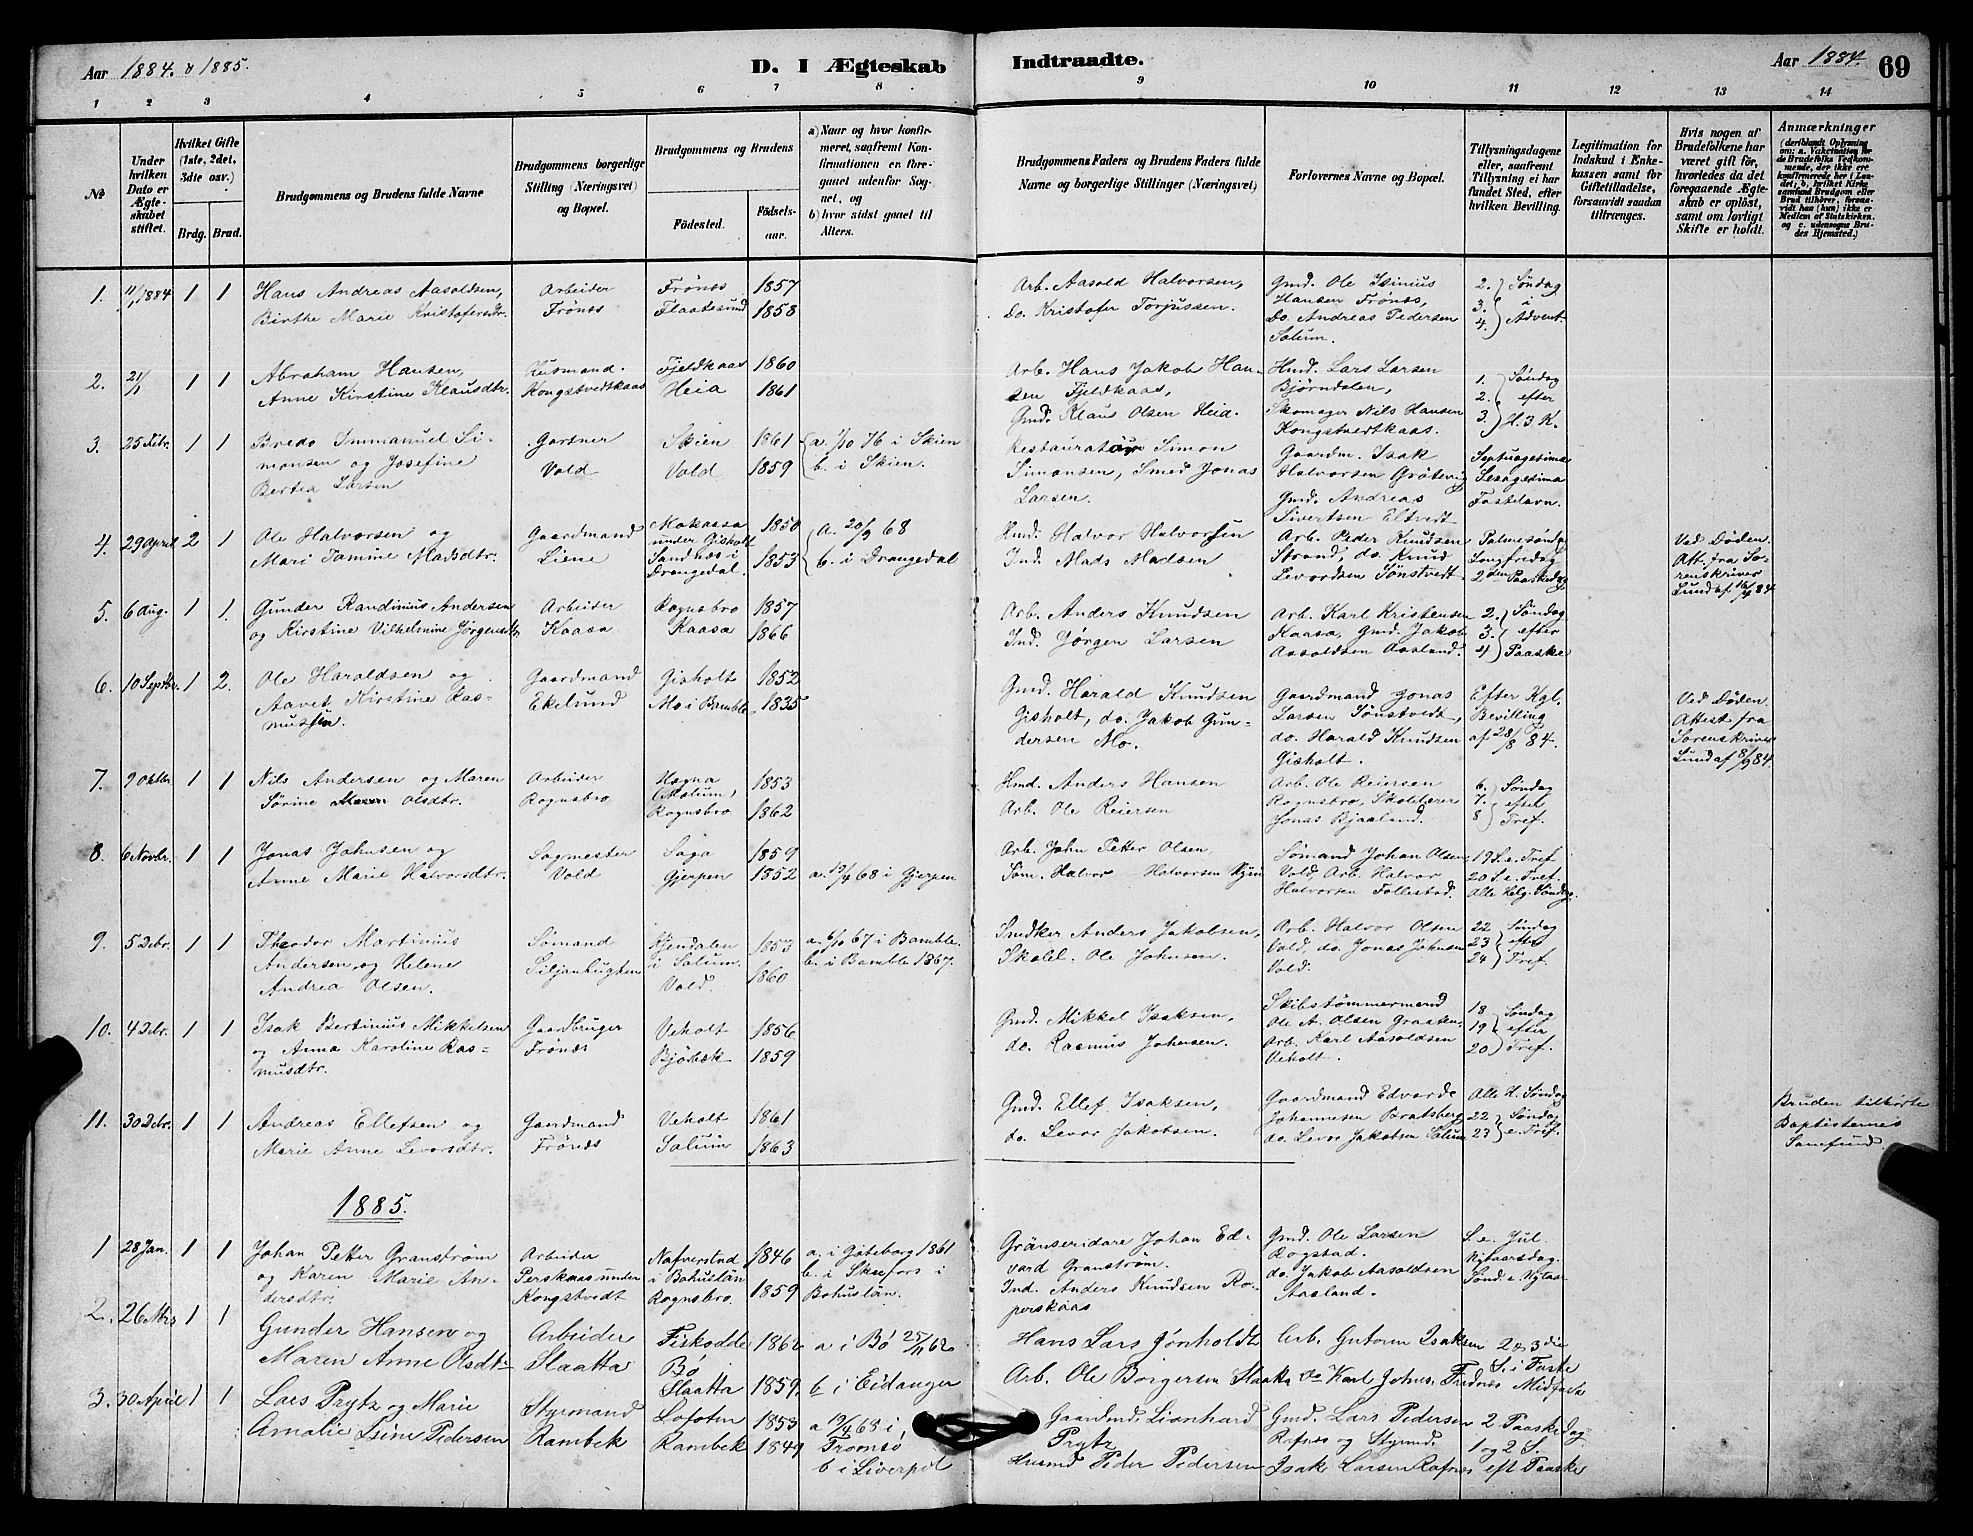 Aar 1884 & 1885.
D. I Ægteskab Indtraadte.
Aar 1884.
69
1 2 3 4 5 6 7 8 9 10 11 12 13 14
№
Under hvilken Dato er Ægteskabet stiftet.
Hvilket Gifte (1ste, 2det, 3die osv.)
Brdg. Brud.
Brudgommens og Brudens fulde Navne
Brudgommens borgerlige Stilling (Næringsvei) og Bopæl.
Brudgommens og Brudens
Fødested.
Fødselsaar.
a) Naar og hvor konfirmeret, saafremt Konfirmationen er foregaaet udenfor Sognet, og
b) hvor sidst gaaet til Alters.
Brudgommens Faders og Brudens Faders fulde Navne og borgerlige Stillinger (Næringsvei)
Forlovernes Navne og Bopæl.
Tillysningsdagene eller, saafremt Tillysning ei har fundet Sted, efter hvilken Bevilling.
Legitimation for Indskud i Enkekassen samt for Giftetilladelse, forsaavidt saadan tiltrænges.
Hvis nogen af Brudefolkene har været gift før, hvorledes da det foregaaende Ægteskab er opløst, samt om lovligt Skifte er holdt.
Anmærkninger
(deriblandt Oplysning om: a. Vakcination for de Brudefolks Vedkommende, der ikke er konfirmerede her i Landet; b. hvilket Kirkesamfund Brudgom eller Brud tilhører, forsaavidt han (hun) ikke er Medlem af Statskirken, og c. udensogns Brudes Hjemsted.)
1. 11/1 1884 1 1 Hans Andreas Aasoldsen, Arbeider Frönæs 1857 Arb. Aasold Halvorsen, Gmd. Ole Isinius 2. Søndag
Birthe Marie Kristofersdr. Frönæs Flaatesund 1858 Do. Kristofer Torjussen. Hansen Frönæs, 3. i
Do. Andreas Pedersen 4. Advent.
Solum.
2. 21/1 1 1 Abraham Hansen, Husmand. Fjeldkaas 1860 Arb. Hans Jakob Han- Hmd. Lars Larsen 1. Søndag
Anne Kirstine Klausdtr. Kongstvedtkaas Heia 1861 sen Fjeldkaas, Bjørndalen, 2. efter
Gmd. Klaus Olsen Heid. Skomager Nils Hansen 3. H. 3 K.
Kongstvedtkaas.
3. 25 Febr. 1 1 Bredo Immanuel Si- Gartner Skien 1861 a. 1/10 76 i Skien Restauratør Simon Gaardm. Isak Septuagesima
monsen og Josefine Vold Vold 1859 b. i Skien. Simonsen, Smed Jonas Halvorsen Grötsvig Sexagesima
Bertea Larsen Larsen. Gmd. Andreas Fastelavn.
Sivertsen Eltvedt
4. 29 April 2 1 Ole Halvorsen og Gaardmand Mokaasa under Gisholt 1850 a. 20/9 68 Hmd. Halvor Halvorsen Arb. Peder Knudsen Palmesøndag Ved Døden.
Mari Tamine Madsdtr. Liene Sandnæs i Drangedal. 1853 b. i Drangedal Ind. Mads Madsen Strand, do. Knud Langfredag Att. fra So-
Levordsen Sønstvedt 2den Paaskedag renskriver
Lund af 16/4 84
5. 6 Aug. 1 1. Gunder Randinius Andersen Arbeider Rognsbro 1857 Arb. Anders Knudsen Arb. Karl Kristensen 2. Søndag
og Kirstine Vilhelmine Jørgensdtr. Kaasa Kaasa 1866 Ind. Jørgen Larsen Kaasa, Gmd. Jakob 3. efter
Aasoldsen Aasland. 4 Paaske
6. 10 Septbr. 1 2. Ole Haraldsen og Gaardmand Gisholt 1852 Gmd. Harald Knudsen Gaardmand Jonas Efter Kgl. Ved Døden.
Aavet Kirstine Ras- Ekelund Mo i Bamble 1835 Gisholt, do. Jakob Gun- Larsen Sønstvedt, Bevilling Attest fra
mussen. dersen Mo. do. Harald Knudsen af 28/8 84. Sorenskriver
Gisholt. Lund af 8/9 84.
7. 9 Oktbr. 1 1 Nils Andersen og Maren Arbeider Hogna (Solum) 1853 Hmd. Anders Hansen Arb. Ole Reiersen 6. Søndag
Sørine Olsdtr. Rognsbro Rognsbro 1862 Arb. Ole Reiersen Rognsbro, Skolelærer 7. efter
Jonas Bjaaland. 8 Tref.
8. 6 Novbr. 1 1 Jonas Johnsen og Sagmester Saga 1859 Arb. John Petter Olsen Sømand Johan Olsen 19 S. e. Tref
Anne Marie Halvorsdtr. Vold Gjerpen 1852 a. 19/4 68 i Gjerpen Søm. Halvor Halvorsen Vold, Arb. Halvor 20 S. e. Tref.
Halvorsen Follestad. Alle Helg. Søndag.
9. 5 Debr. 1 1 Theodor Martinius Sømand i Solum. 1853 a. 6/10 67 i Bamble. Snedker Anders Jakobsen, Arb. Halvor Olsen 22 Søndag
Andersen, og Helene Siljanbugten Vold. 1860 b. i Bamble 1867. Skolel. Ole Johnsen. Vold, do. Jonas Johnsen 23 efter
Andrea Olsen. Vold. 24 Tref.
10. 4 Debr. 1 1 Isak Bertinius Mikkelsen Gaardbruger Veholt 1856 Gmd. Mikkel Isaksen, Skibstømmermand 18 Søndag
og Anna Karoline Ras- Frönæs Bjöbæk 1859 do. Rasmus Johnsen. Ole A. Olsen Graaten, 19 efter
musdtr. Arb. Karl Aasoldsen 20 Tref.
Veholt.
11. 30 Debr. 1 1 Andreas Ellefsen og Gaardmand Veholt 1861 Gmd. Ellef Isaksen, Gaardmand Edvard Alle H. Søndag Bruden tilhörte
Marie Anne Levorsdtr. Frönæs Solum 1863 do. Levor Jakobsen. Johannesen Bratsberg, 22 Søndag Baptisternes
do. Levor Jakobsen Solum 23 e. Tref. Samfund
1885.
1 28 Jan. 1 1 Johan Petter Granström Arbeider Nafverstad 1846 a. i Göteborg 1861 Gränseridare Johan Ed- Gmd. Ole Larsen S. e. Jul.
og Karen Marie An- Perskaas under i Bohuslän b. i Skeefors i vard Granström. Rogstad. Nytaarsdag.
dersdtr. Kongstvedt Rognsbro. 1859 Bohuslän. Ind. Anders Knudsen Ro- do. Jakob Aasoldsen Sønd. e. Nytaar
perskaas Aasland.
2. 26 Mrs 1 1 Gunder Hansen og Arbeider Fiskodde Bø 1862 a i Bø 25/11 62 Hans Lars Jönholdt Arb. Gutorm Isaksen 2 og 3die
Maren Anne Olsdtr Slaatta Slaatta 1859. b i Eidanger Arb. Ole Börgersen Slaatta do Karl Johns. Frednes S. i Faste Midfaste
3. 30 April 1 1 Lars Prytz og Marie Styrmand Lofoten 1853 a 19/4 68 i Gaardmd. Lionhard Gmd. Lars Pedersen 2 Paaskedag
Amalie Isine Pedersen Rambek Rambek 1849 Tromsö Prytz Rafnes og Styrmd. 1 og 2 S.
b i Liverpol Husmd Peder Pedersen Isak Larsen Rafnes eft Paaske